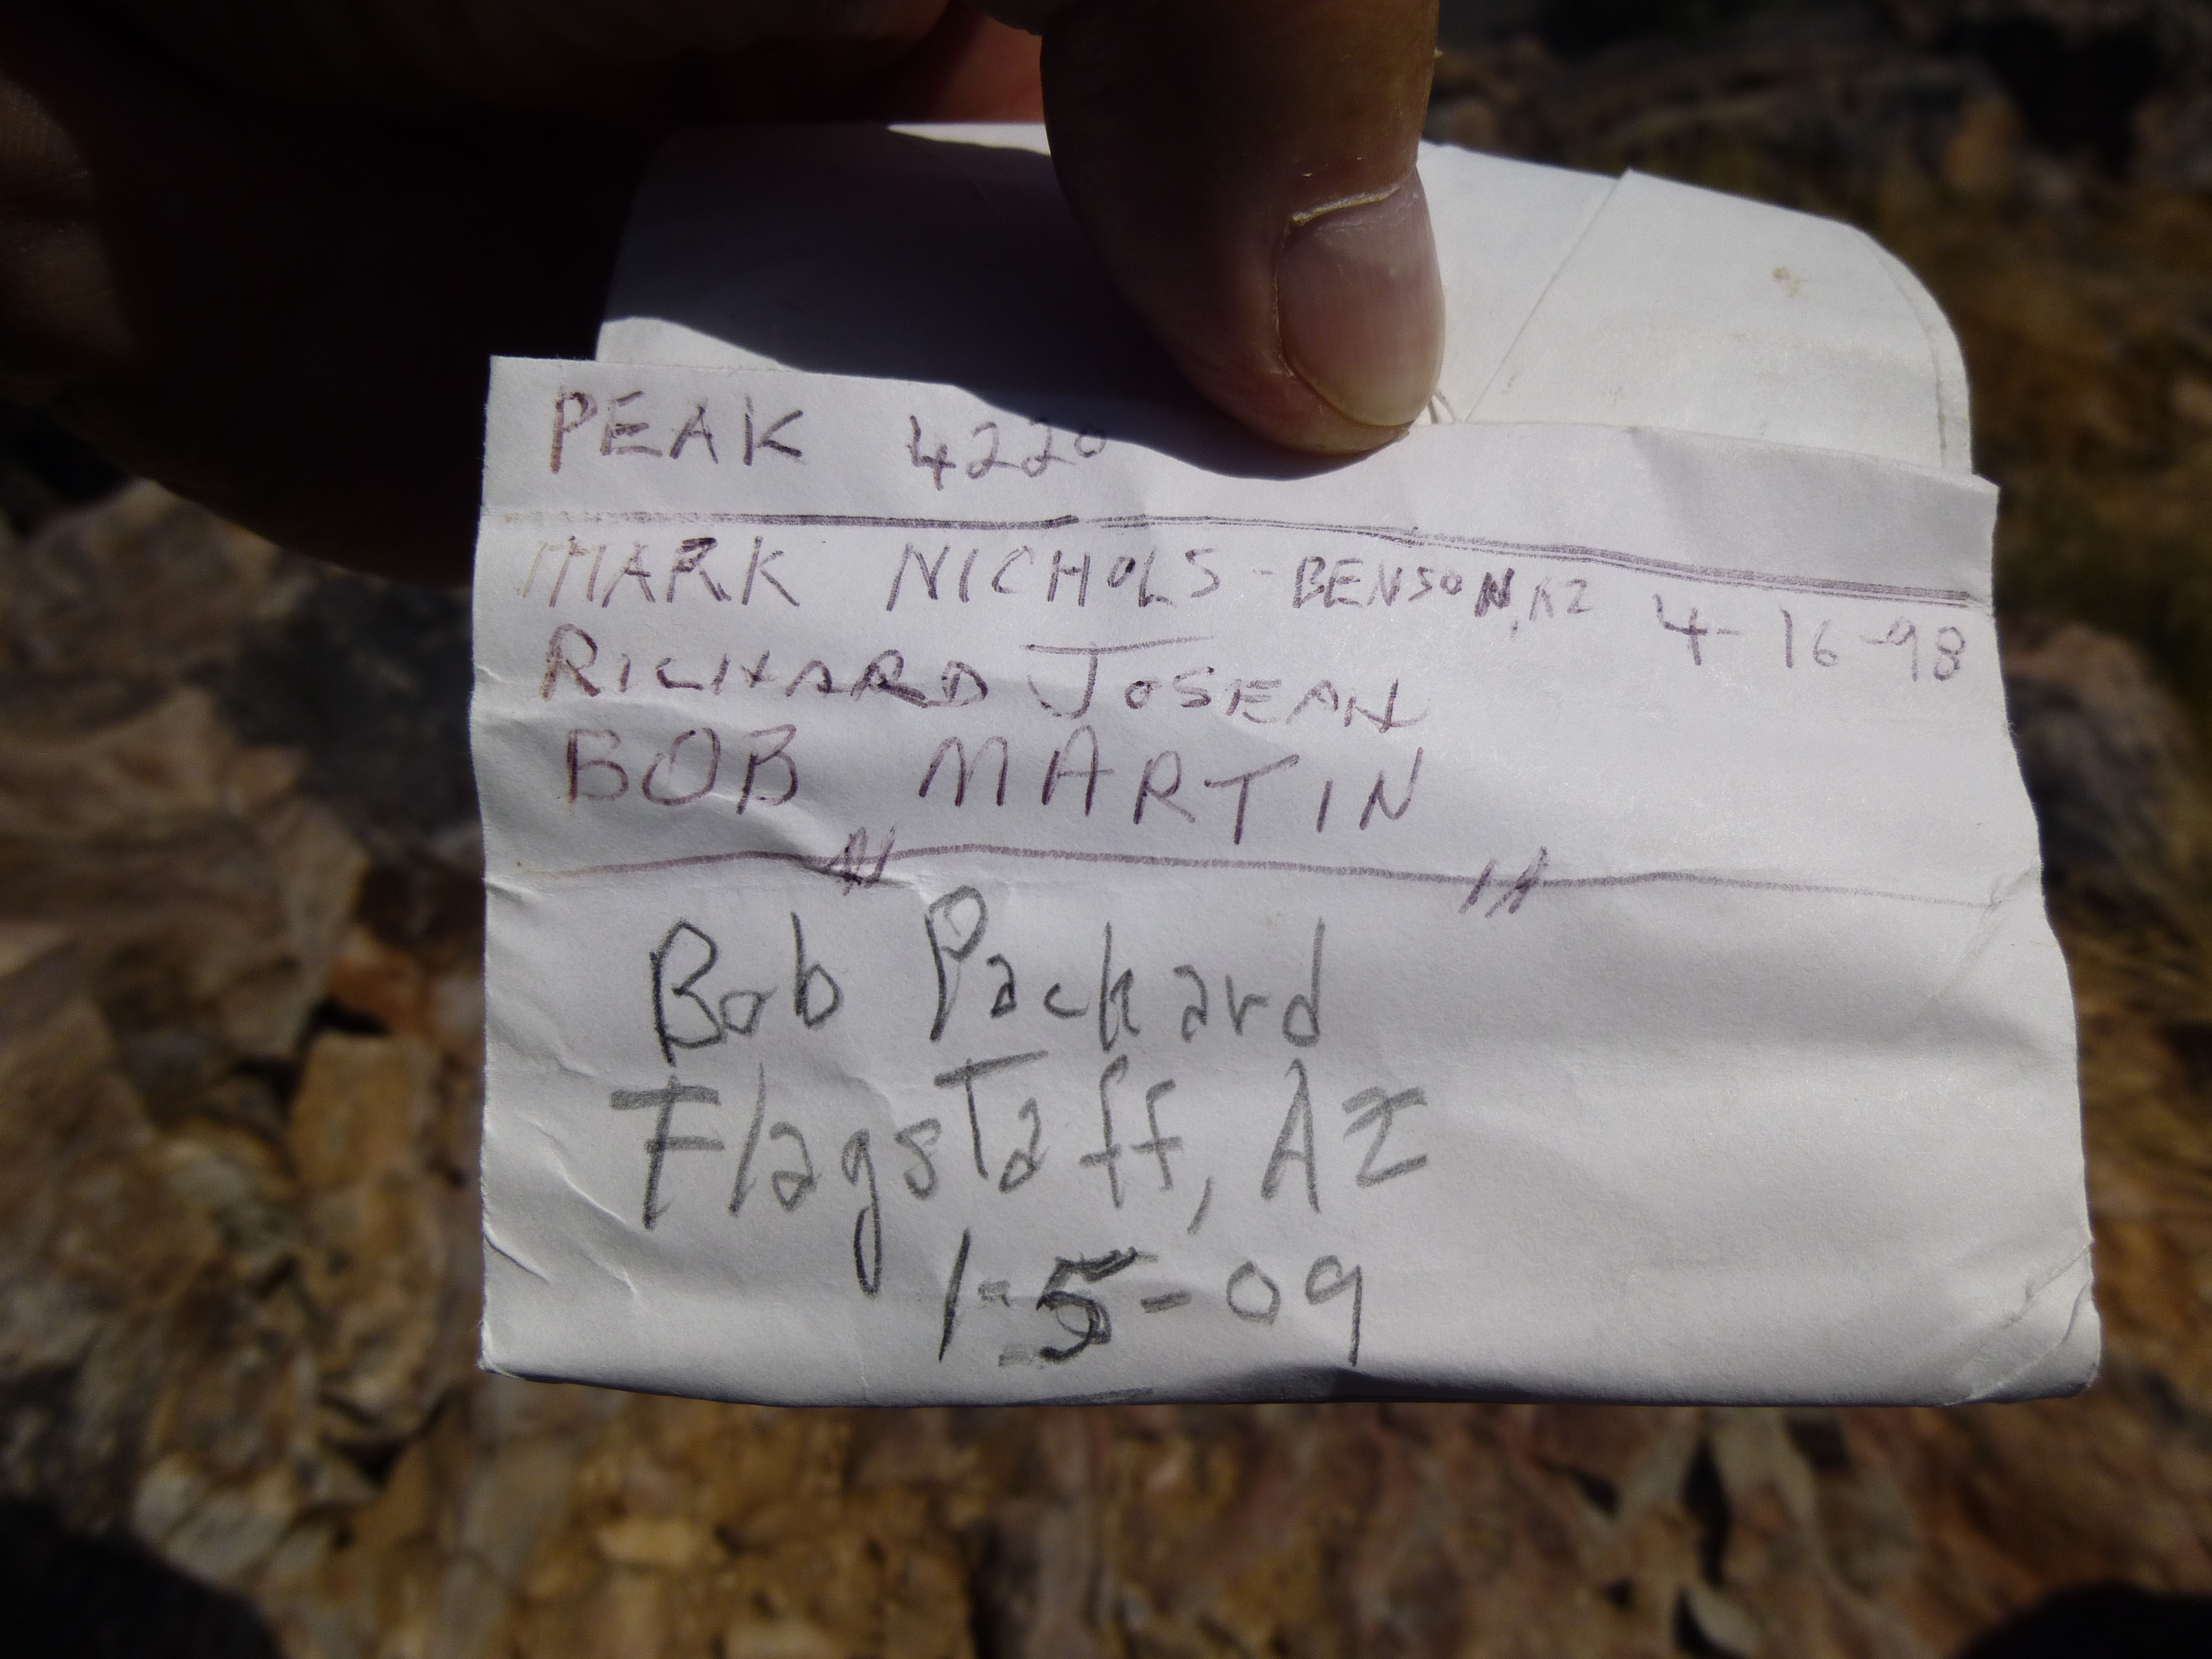 PEAK 4220
MARK NICHOLS - BENSON, AZ 4-16-98
RICHARD JOSEAN
BOB MARTIN
Bob Packard
Flagstaff, AZ
1-5-09